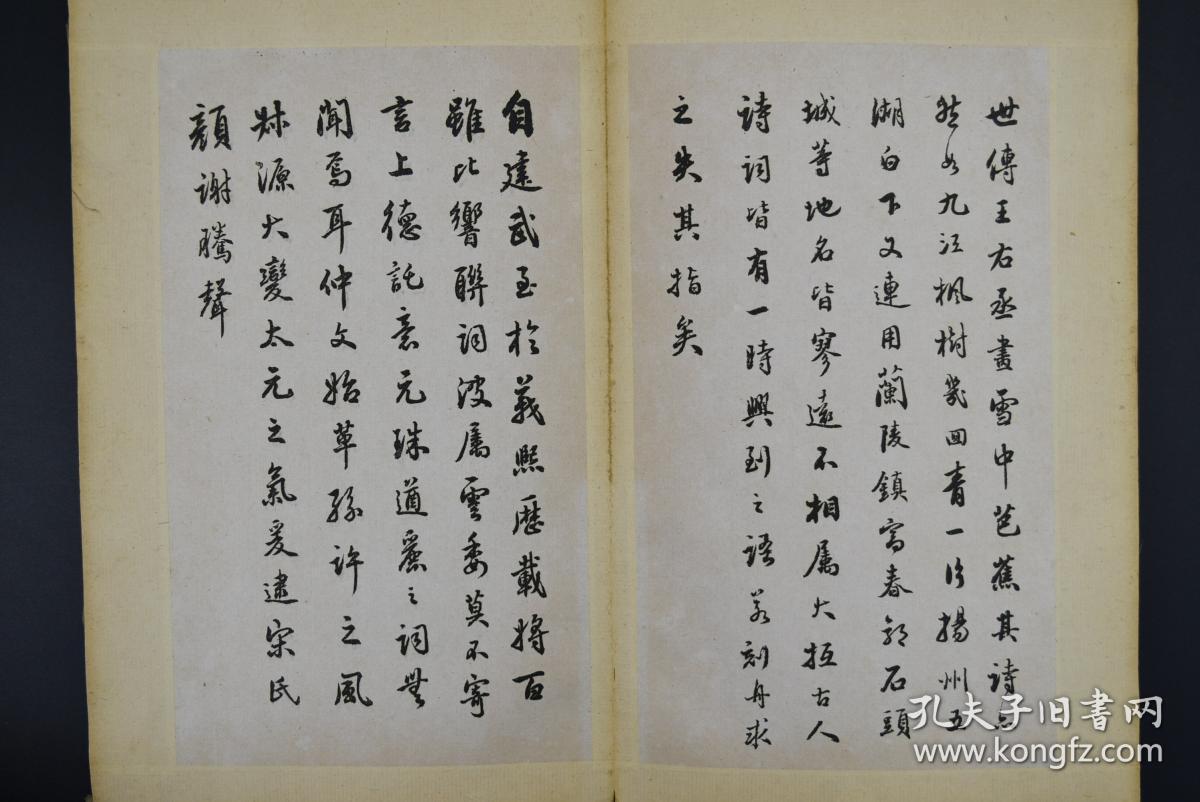 世傳王右丞畫雪中芭蕉其詩亦
然如九江楓樹幾回青一片揚州五
湖白下又連用蘭陵鎮富春郭石頭
城等地名皆寥遠不相屬大抵古人
詩詞皆有一時興到之語若刻舟求
之失其指矣
自建武至於義熙歷載將百
雖比響聯詞波屬雲委莫不寄
言上德託意元珠遒麗之詞無
聞焉耳仲文始革孫許之風
叔源大變太元之氣爰逮宋氏
顏謝騰聲
孔夫子旧书网
www.kongfz.com